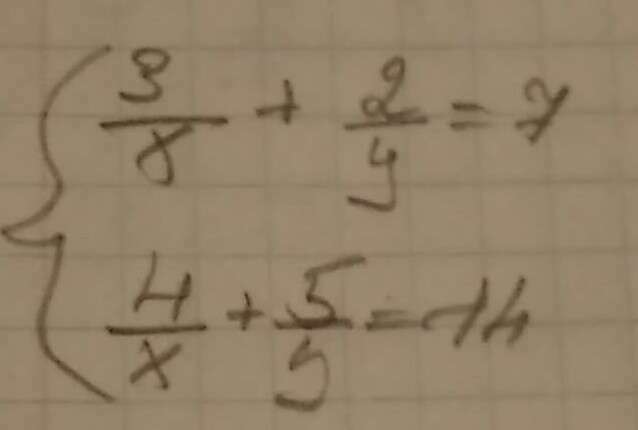 3/x + 2/y = 7
4/x + 5/y = 14